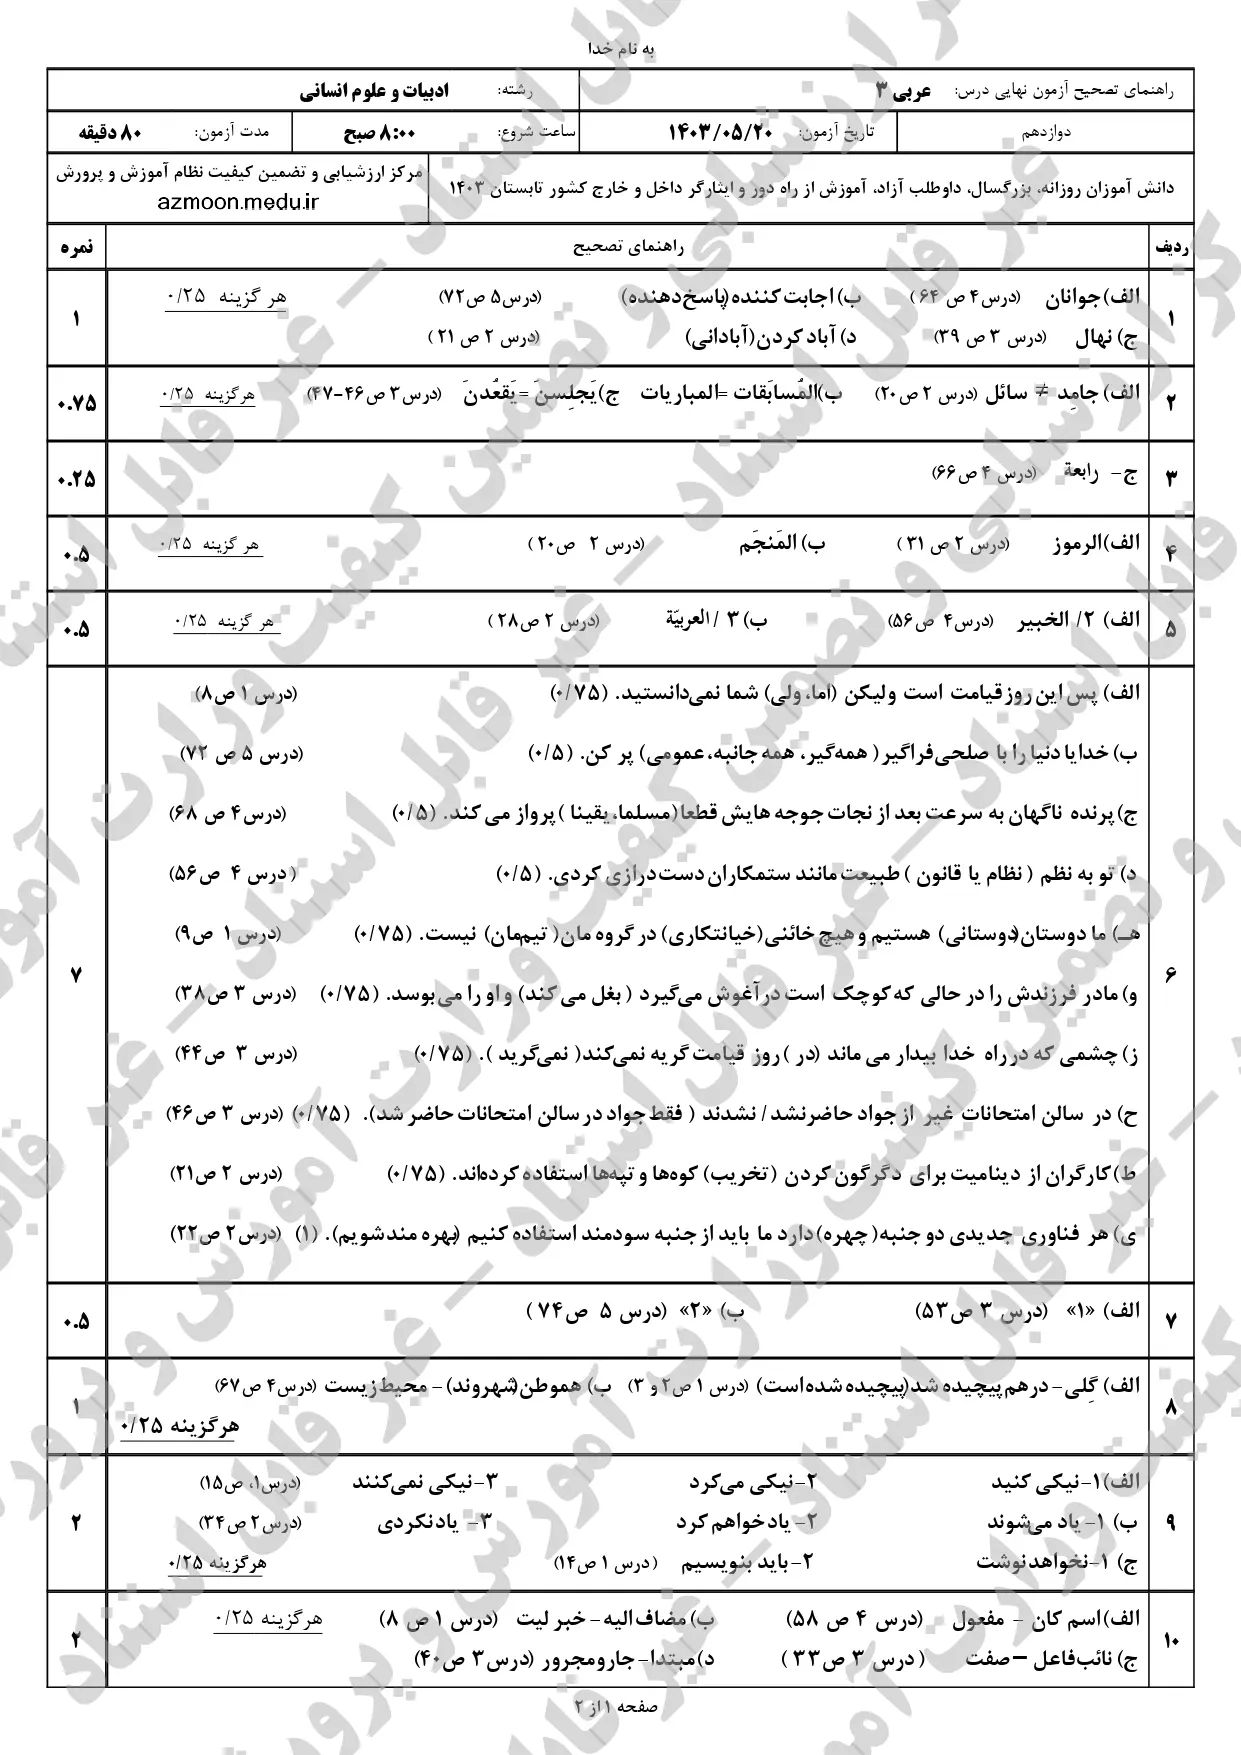 به نام خدا
راهنمای تصحیح آزمون نهایی درس: عربی ۳ رشته: ادبیات و علوم انسانی
دوازدهم تاریخ آزمون: ۱۴۰۳/۰۵/۲۰ ساعت شروع: ۸:۰۰ صبح مدت آزمون: ۸۰ دقیقه
دانش آموزان روزانه، بزرگسال، داوطلب آزاد، آموزش از راه دور و ایثارگر داخل و خارج کشور تابستان ۱۴۰۳ مرکز ارزشیابی و تضمین کیفیت نظام آموزش و پرورش
azmoon.medu.ir
ردیف راهنمای تصحیح نمره
۱ الف) جوانان (درس۴ ص ۶۴) ب) اجابت کننده (پاسخ‌دهنده) (درس۵ ص۷۲) هر گزینه ۰/۲۵ ۱
ج) نهال (درس ۳ ص ۳۹) د) آباد کردن (آبادانی) (درس ۲ ص ۲۱)
۲ الف) جامِد ≠ سائل (درس ۲ ص۲۰) ب)المُسابَقات =المباریات ج) یَجلِسنَ = یَقعُدنَ (درس۳ ص۴۶-۴۷) هرگزینه ۰/۲۵ ۰.۷۵
۳ ج- رابعة (درس ۴ ص۶۶) ۰.۲۵
۴ الف)الرموز (درس ۲ ص ۳۱) ب) المَنجَم (درس ۲ ص۲۰) هر گزینه ۰/۲۵ ۰.۵
۵ الف) ۲/ الخبیر (درس۴ ص۵۶) ب) ۳ / العربیّة (درس ۲ ص۲۸) هر گزینه ۰/۲۵ ۰.۵
الف) پس این روز قیامت است ولیکن (اما، ولی) شما نمی‌دانستید. (۰/۷۵) (درس ۱ ص۸)
ب) خدایا دنیا را با صلحی فراگیر ( همه‌گیر، همه جانبه، عمومی) پر کن. (۰/۵) (درس ۵ ص ۷۲)
ج) پرنده ناگهان به سرعت بعد از نجات جوجه هایش قطعا (مسلما، یقینا ) پرواز می کند. (۰/۵) (درس۴ ص ۶۸)
د) تو به نظم ( نظام یا قانون ) طبیعت مانند ستمکاران دست درازی کردی. (۰/۵) (درس ۴ ص۵۶)
۶ هـ) ما دوستان(دوستانی) هستیم و هیچ خائنی (خیانتکاری) در گروه مان( تیم‌مان) نیست. (۰/۷۵) (درس ۱ ص۹) ۷
و) مادر فرزندش را در حالی که کوچک است در آغوش می‌گیرد ( بغل می کند) و او را می بوسد. (۰/۷۵) (درس ۳ ص۳۸)
ز) چشمی که در راه خدا بیدار می ماند (در ) روز قیامت گریه نمی‌کند( نمی‌گرید ). (۰/۷۵) (درس ۳ ص۴۴)
ح) در سالن امتحانات غیر از جواد حاضرنشد / نشدند ( فقط جواد در سالن امتحانات حاضر شد). (۰/۷۵) (درس ۳ ص۴۶)
ط) کارگران از دینامیت برای دگرگون کردن (تخریب) کوه‌ها و تپه‌ها استفاده کرده‌اند. (۰/۷۵) (درس ۲ ص۲۱)
ی) هر فناوری جدیدی دو جنبه( چهره) دارد ما باید از جنبه سودمند استفاده کنیم (بهره مند شویم). (۱) (درس۲ ص۲۲)
۷ الف) «۱» (درس ۳ ص۵۳) ب) «۲» (درس ۵ ص۷۴) ۰.۵
۸ الف) گِلی - درهم پیچیده شد (پیچیده شده است) (درس ۱ ص۲ و ۳) ب) هموطن (شهروند) - محیط زیست (درس۴ ص۶۷) ۱
هرگزینه ۰/۲۵
الف)۱-نیکی کنید ۲-نیکی می‌کرد ۳-نیکی نمی‌کنند (درس۱، ص۱۵)
۹ ب) ۱- یاد می‌شوند ۲- یاد خواهم کرد ۳- یاد نکردی (درس۲ ص۳۴) ۲
ج) ۱-نخواهد نوشت ۲-باید بنویسیم (درس ۱ ص۱۴) هرگزینه ۰/۲۵
۱۰ الف) اسم کان - مفعول (درس ۴ ص ۵۸) ب) مضاف الیه - خبر لیت (درس ۱ ص ۸) هرگزینه ۰/۲۵ ۲
ج) نائب فاعل – صفت (درس ۳ ص۳۳) د) مبتدا- جارومجرور (درس۳ ص۴۰)
صفحه ۱ از ۲
مرکز ارزشیابی و تضمین کیفیت وزارت آموزش و پرورش – غیر قابل استناد